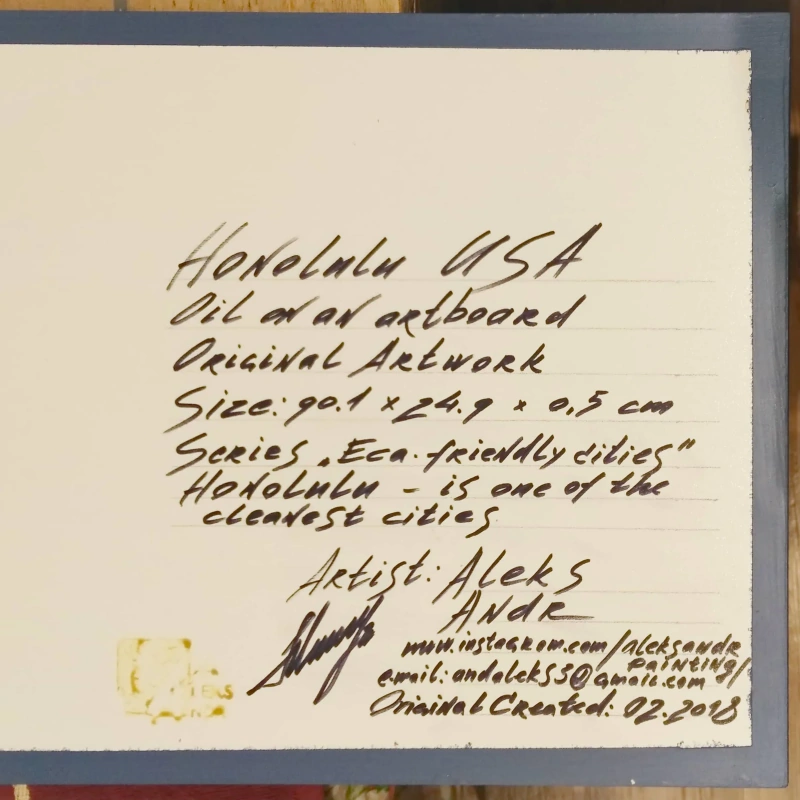 Honolulu USA
Oil on an artboard
Original Artwork
Size: 90.1 x 24.9 x 0,5 cm
Series „Eco-friendly cities"
Honolulu - is one of the
cleanest cities
Artist: Aleks
Andr
www.instagram.com/aleksandr
painting/
email: andaleks3@gmail.com
Original Created: 02.2018